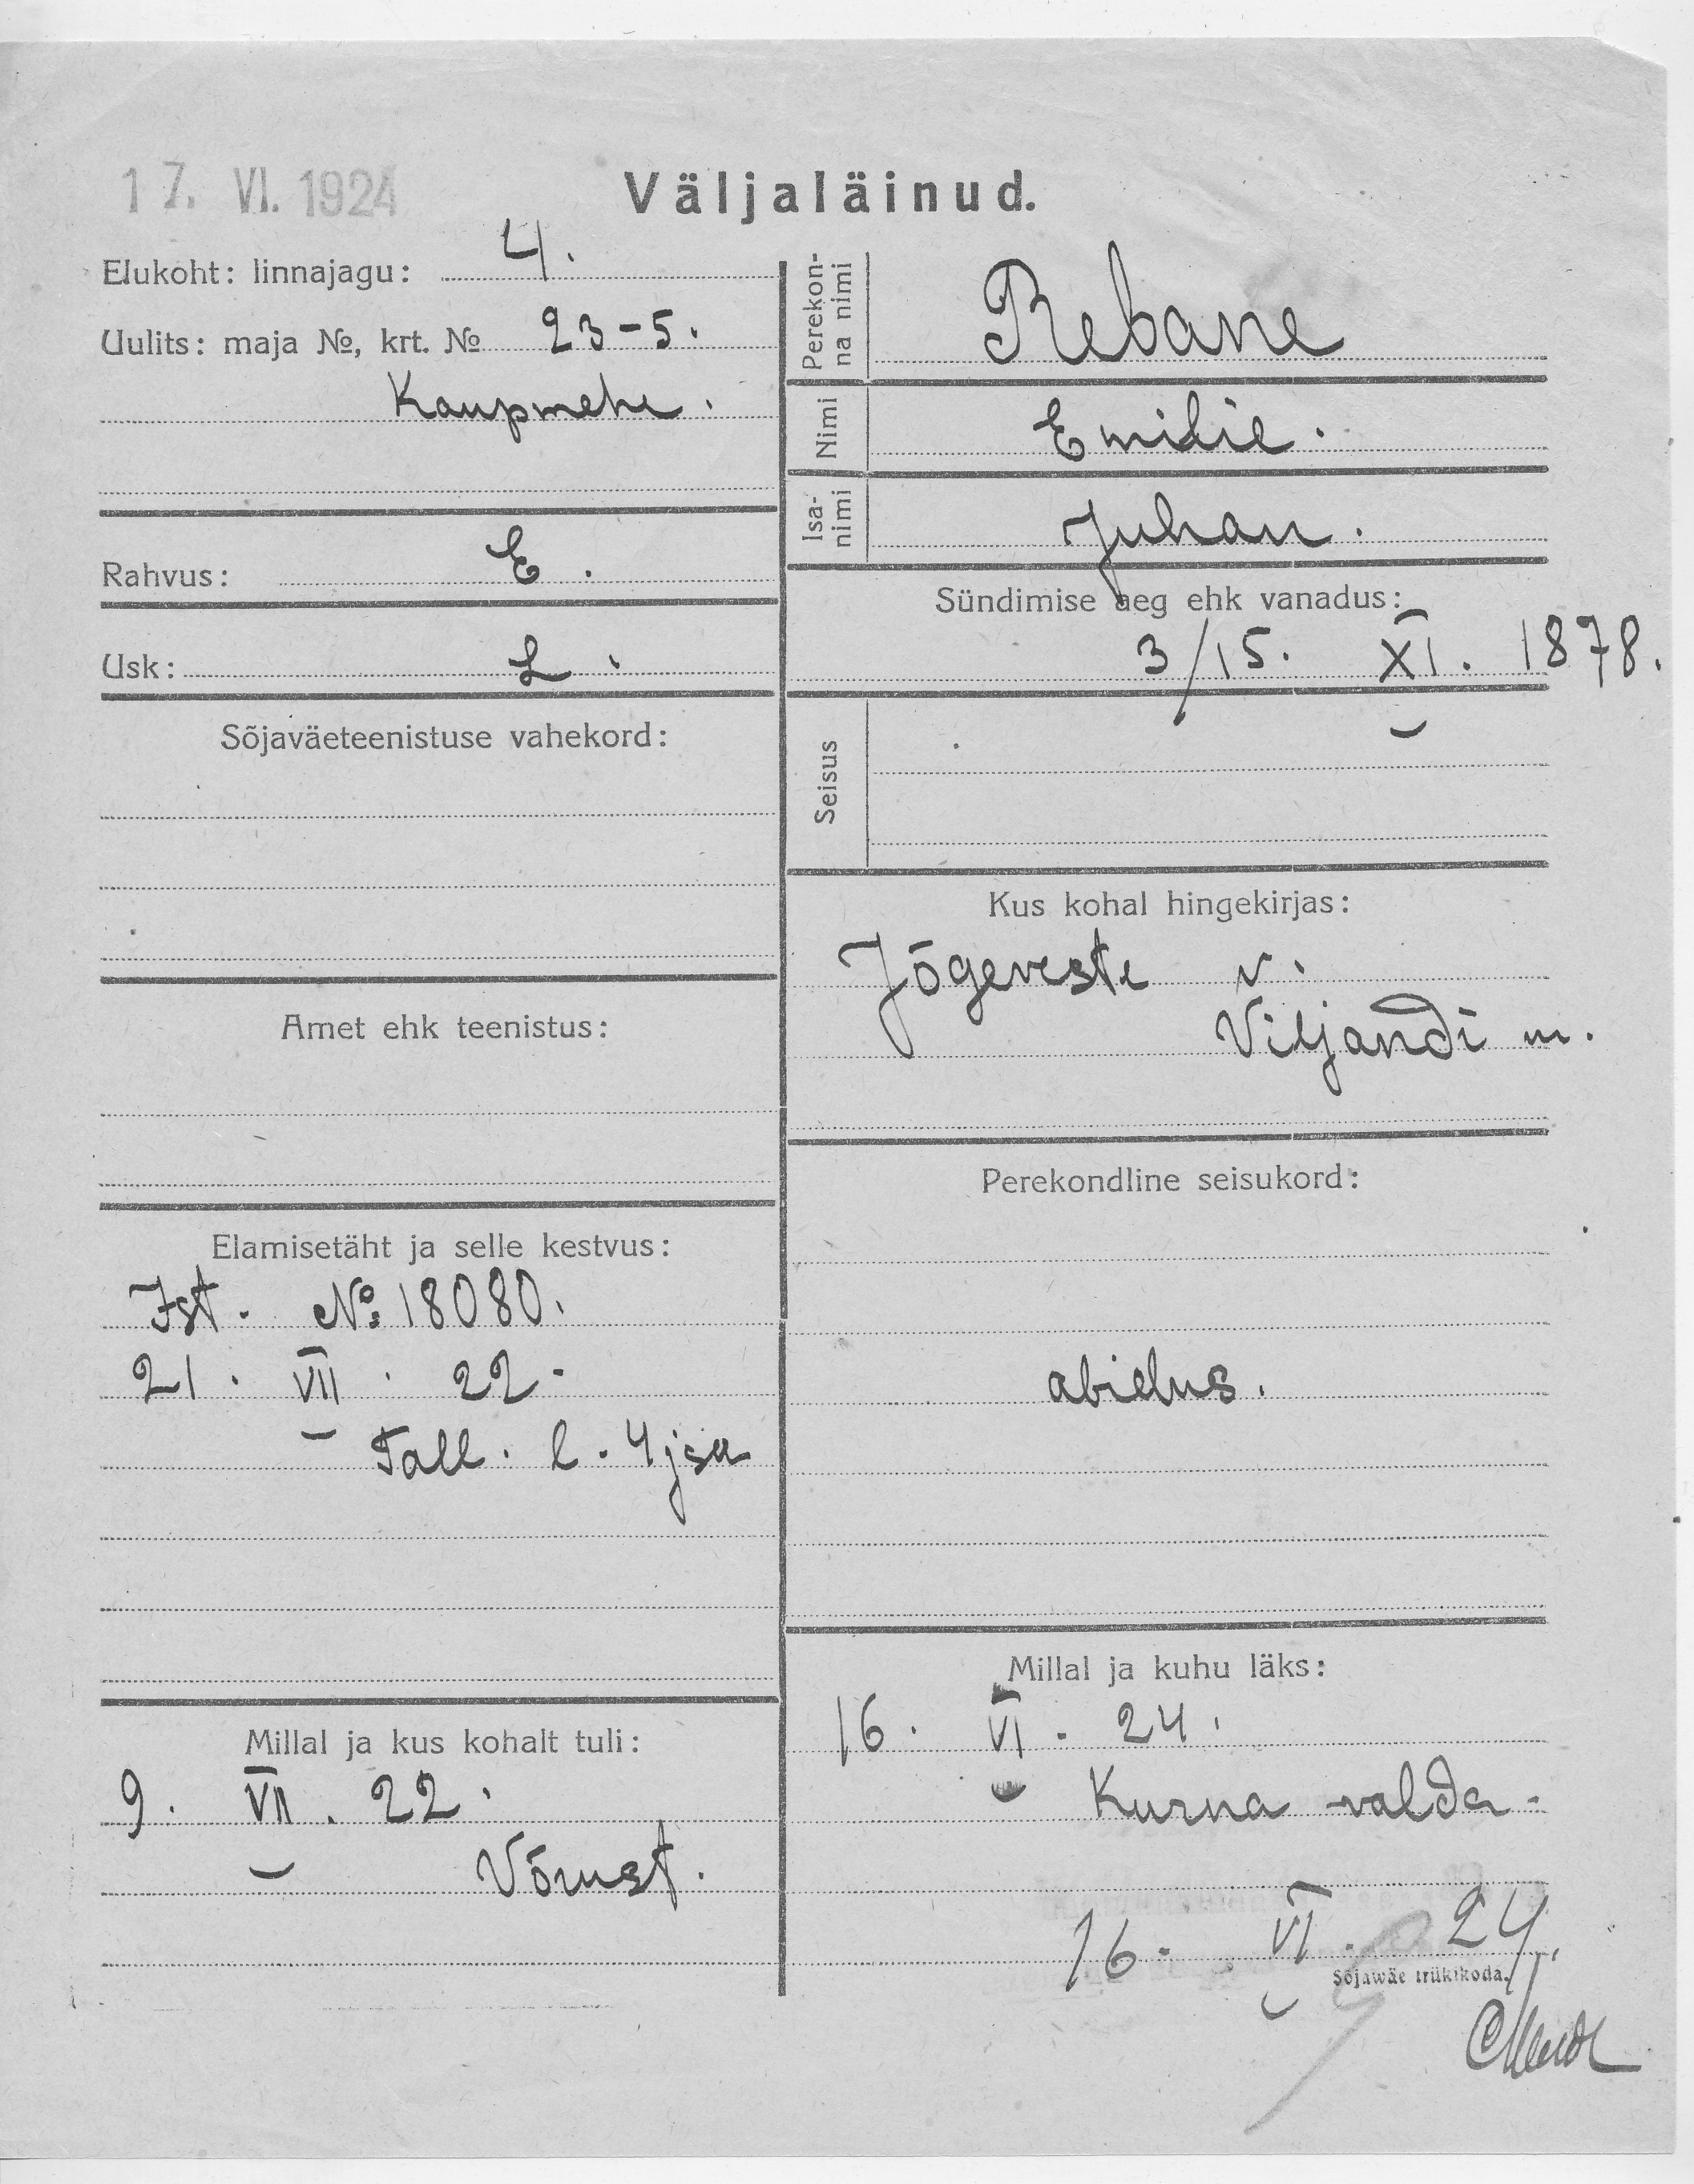 17. VI. 1924
Väljaläinud.
Elukoht: linnajagu: 4.
Uulits: maja №, krt. № 23-5.
Kaupmehe.
Rahvus: E.
Usk: L.
Sõjaväeteenistuse vahekord:
Amet ehk teenistus:
Elamisetäht ja selle kestvus:
Ist. № 18080.
21. VII. 22.
Tall. l. 4 jsa
Millal ja kus kohalt tuli:
9. VII. 22.
Võrust.
Perekon-
na nimi
Rebane
Nimi
Emilie.
Isa-
nimi
Juhan.
Sündimise aeg ehk vanadus:
3/15. XI. 1878.
Seisus
Kus kohal hingekirjas:
Jõgeveste v.
Viljandi m.
Perekondline seisukord:
abielus.
Millal ja kuhu läks:
16. VI. 24.
Kurna valda.
16. VI. 24.
Sõjawäe trükikoda.